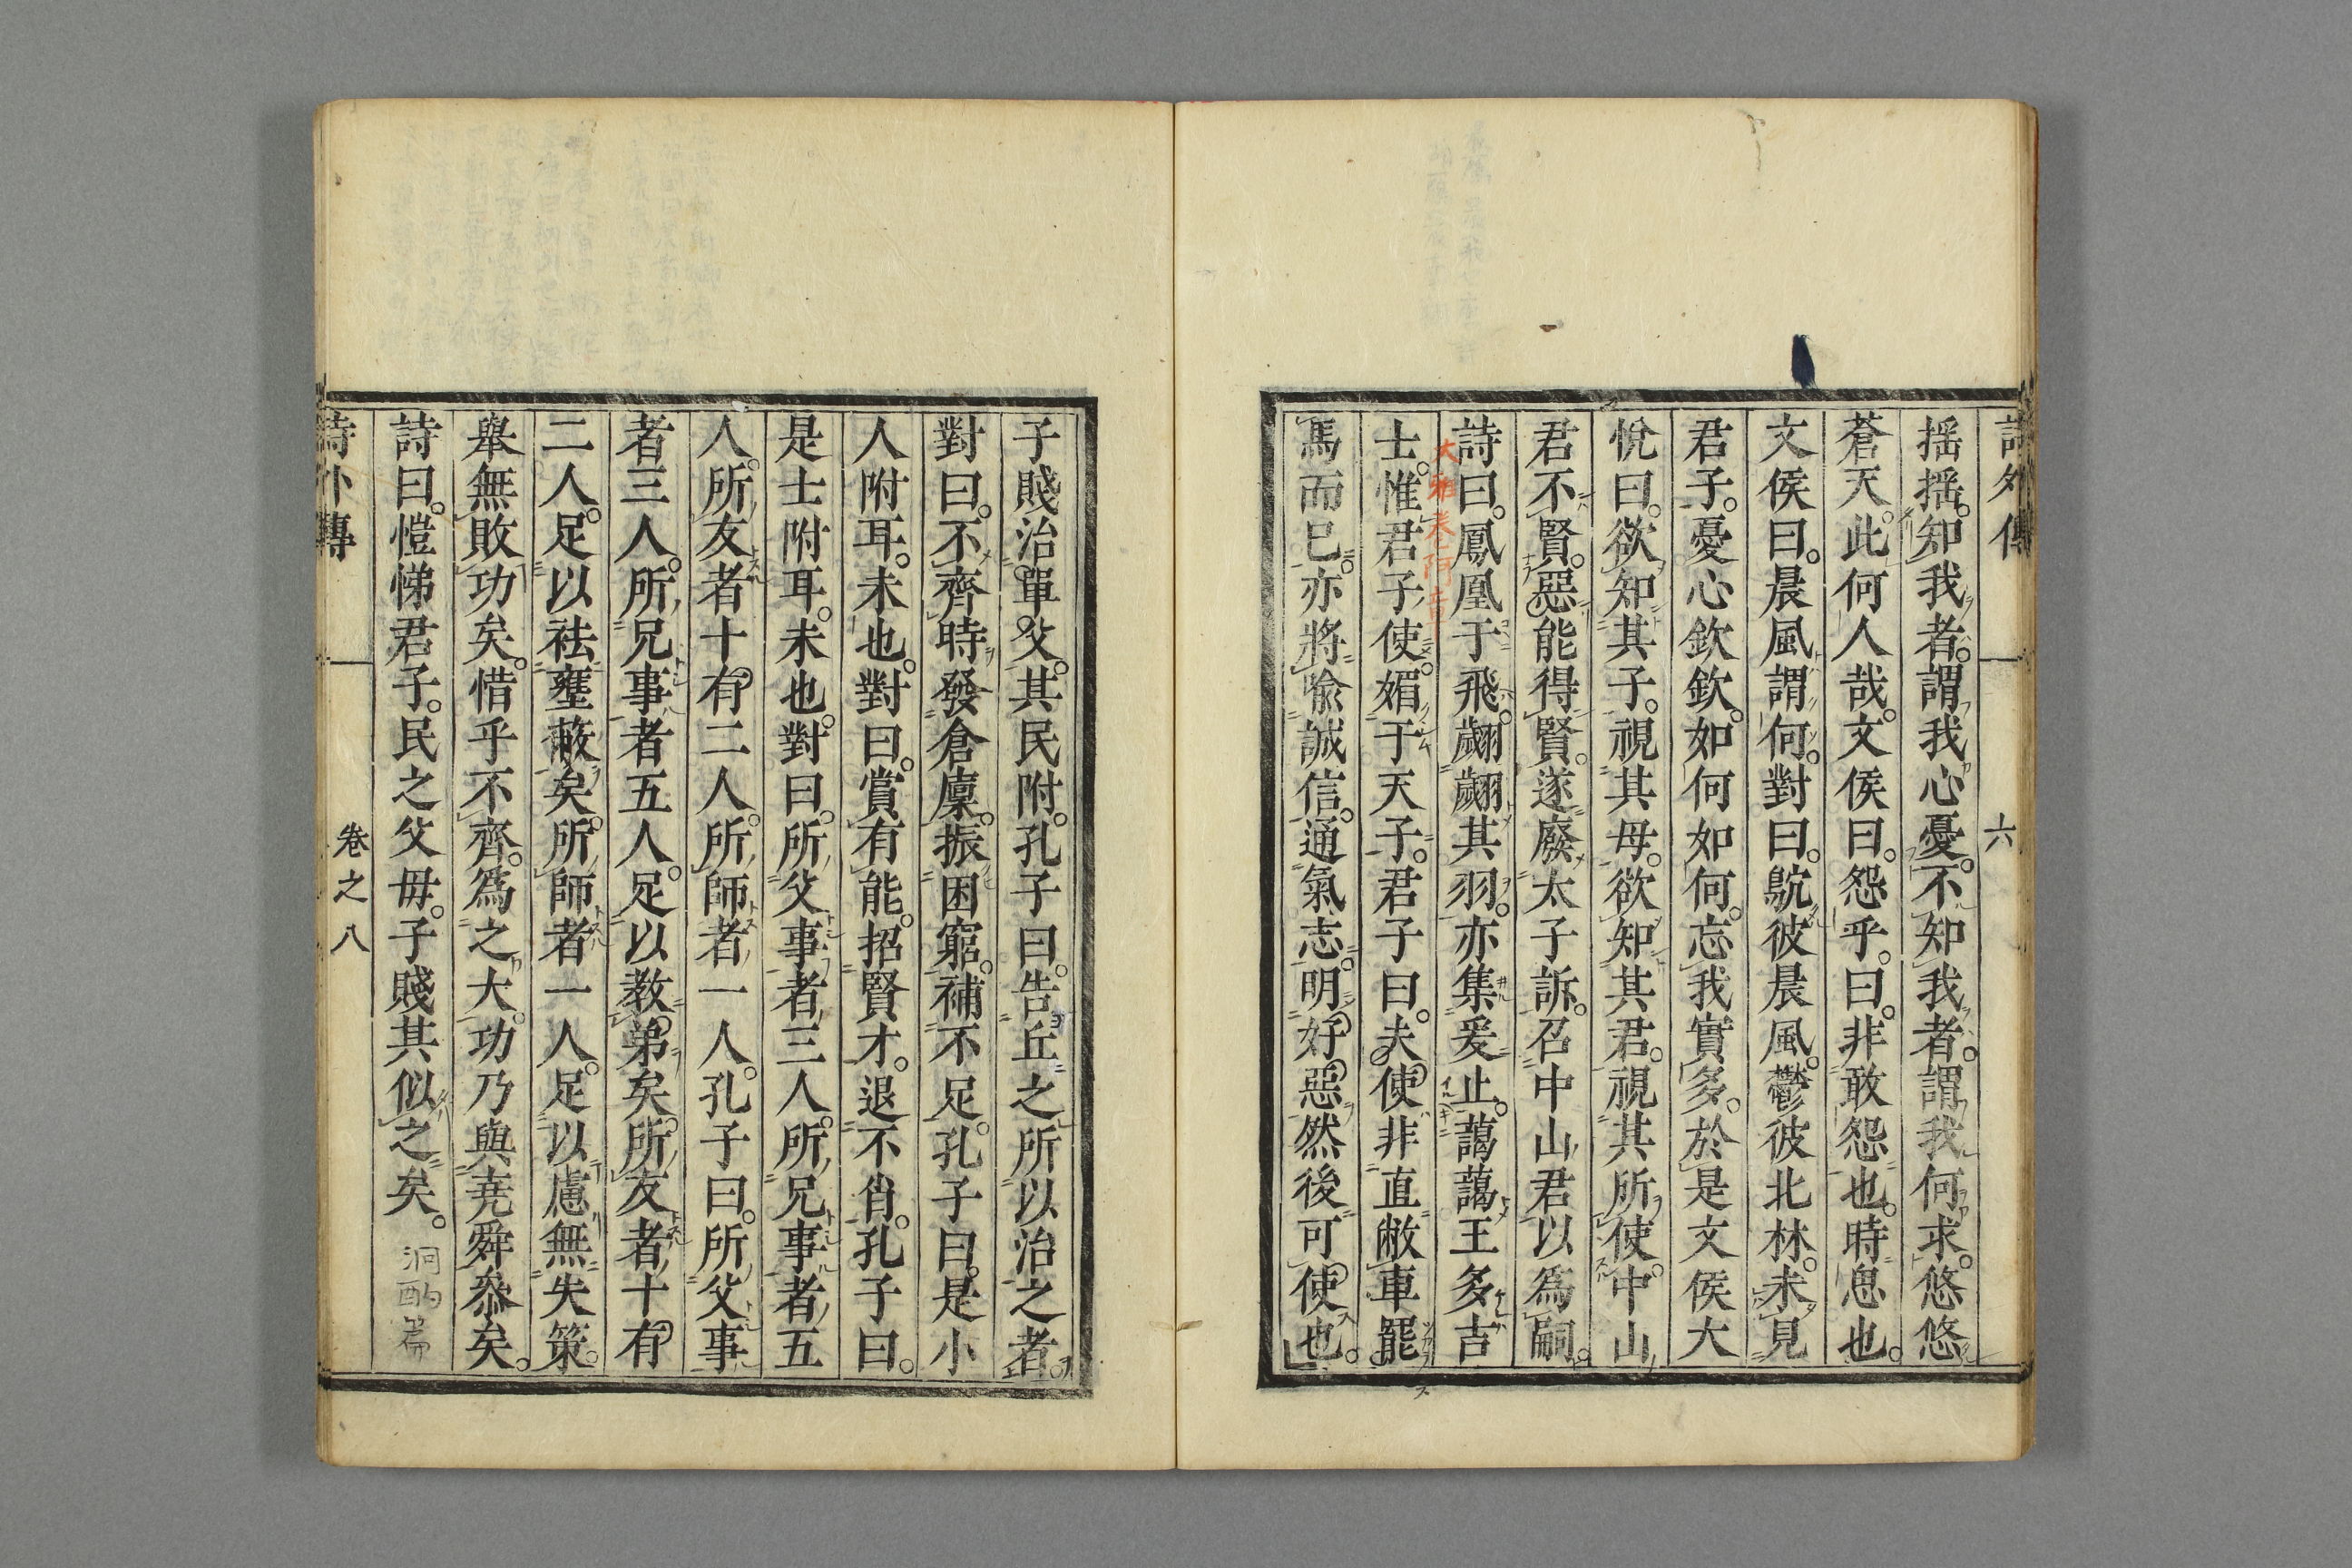 詩外傳 六
揺揺。知我者。謂我心憂。不知我者。謂我何求。悠悠
蒼天。此何人哉。文侯曰。怨乎。曰。非敢怨也。時思也。
文侯曰。晨風謂何。對曰。鴥彼晨風。鬱彼北林。未見
君子。憂心欽欽。如何如何。忘我實多。於是文侯大
悅曰。欲知其子。視其母。欲知其君。視其所使。中山
君不賢。惡能得賢。遂廢太子訴。召中山君以爲嗣。
詩曰。鳳凰于飛。翽翽其羽。亦集爰止。藹藹王多吉
士。惟君子使。媚于天子。君子曰。夫使非直敝車罷
馬而已。亦將喩誠信。通氣志。明好惡。然後可使也。
子賤治單父。其民附。孔子曰。告丘之所以治之者。
對曰。不齊時發倉廩。振困窮。補不足。孔子曰。是小
人附耳。未也。對曰。賞有能。招賢才。退不肖。孔子曰。
是士附耳。未也。對曰。所父事者三人。所兄事者五
人。所友者十有二人。所師者一人。孔子曰。所父事
者三人。所兄事者五人。足以教弟矣。所友者十有
二人。足以祛壅蔽矣。所師者一人。足以慮無失策。
舉無敗功矣。惜乎不齊。爲之大。功乃與堯舜參矣。
詩曰。愷悌君子。民之父母。子賤其似之矣。洞酌篇
詩外傳 卷之八